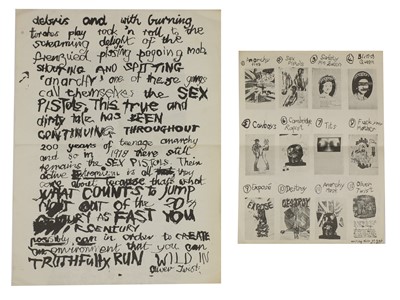 debris and with burning
torches play rock 'n roll to the
screaming delight of the
frenzied pissing pogoing mob.
SHOUTING AND SPITTING
'anarchy' one of these gangs
call themselves the SEX
PISTOLS. This true and
dirty tale has BEEN
CONTINUING THROUGHOUT
200 years of teenage anarchy
and so in 1978 there still
remains the SEX PISTOLS. Their
active extremism is all they
care about because that's what
WHAT COUNTS TO JUMP
RIGHT OUT of the 20TH
CENTURY as FAST as YOU
possibly can in order to CREATE
an environment that you can
TRUTHFULLY RUN WILD IN
Oliver Twist
① Anarchy
② Sex Pistols
③ Safety
④
⑤ Cowboys
⑥ Cambridge Rapist
⑦ Tits
⑧
⑨ Exposé
⑩ Destroy
⑪ Anarchy
⑫ Oliver Twist
EXPOSE
DESTROY